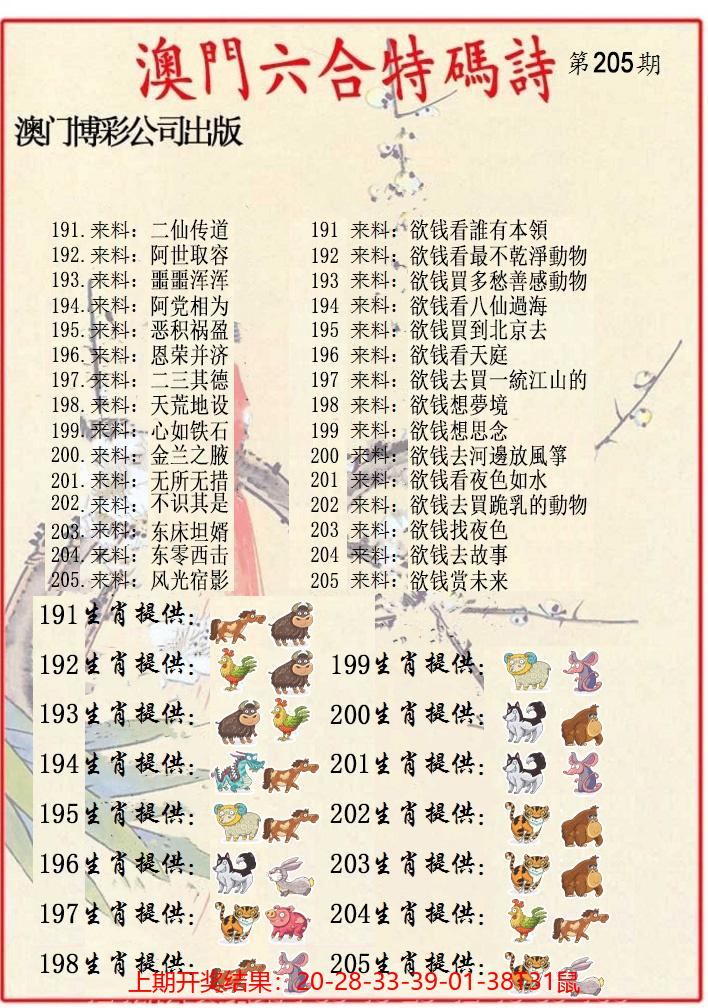 澳門六合特碼詩 第205期
澳门博彩公司出版
191.来料：二仙传道
192.来料：阿世取容
193.来料：噩噩浑浑
194.来料：阿党相为
195.来料：恶积祸盈
196.来料：恩荣并济
197.来料：二三其德
198.来料：天荒地设
199.来料：心如铁石
200.来料：金兰之腋
201.来料：无所无措
202.来料：不识其是
203.来料：东床坦婿
204.来料：东零西击
205.来料：风光宿影
191 来料：欲钱看誰有本領
192 来料：欲钱看最不乾淨動物
193 来料：欲钱買多愁善感動物
194 来料：欲钱看八仙過海
195 来料：欲钱買到北京去
196 来料：欲钱看天庭
197 来料：欲钱去買一統江山的
198 来料：欲钱想夢境
199 来料：欲钱想思念
200 来料：欲钱去河邊放風箏
201 来料：欲钱看夜色如水
202 来料：欲钱去買跪乳的動物
203 来料：欲钱找夜色
204 来料：欲钱去故事
205 来料：欲钱赏未来
191生肖提供：
192生肖提供：
193生肖提供：
194生肖提供：
195生肖提供：
196生肖提供：
197生肖提供：
198生肖提供：
199生肖提供：
200生肖提供：
201生肖提供：
202生肖提供：
203生肖提供：
204生肖提供：
205生肖提供：
上期开奖结果：20-28-33-39-01-38131鼠